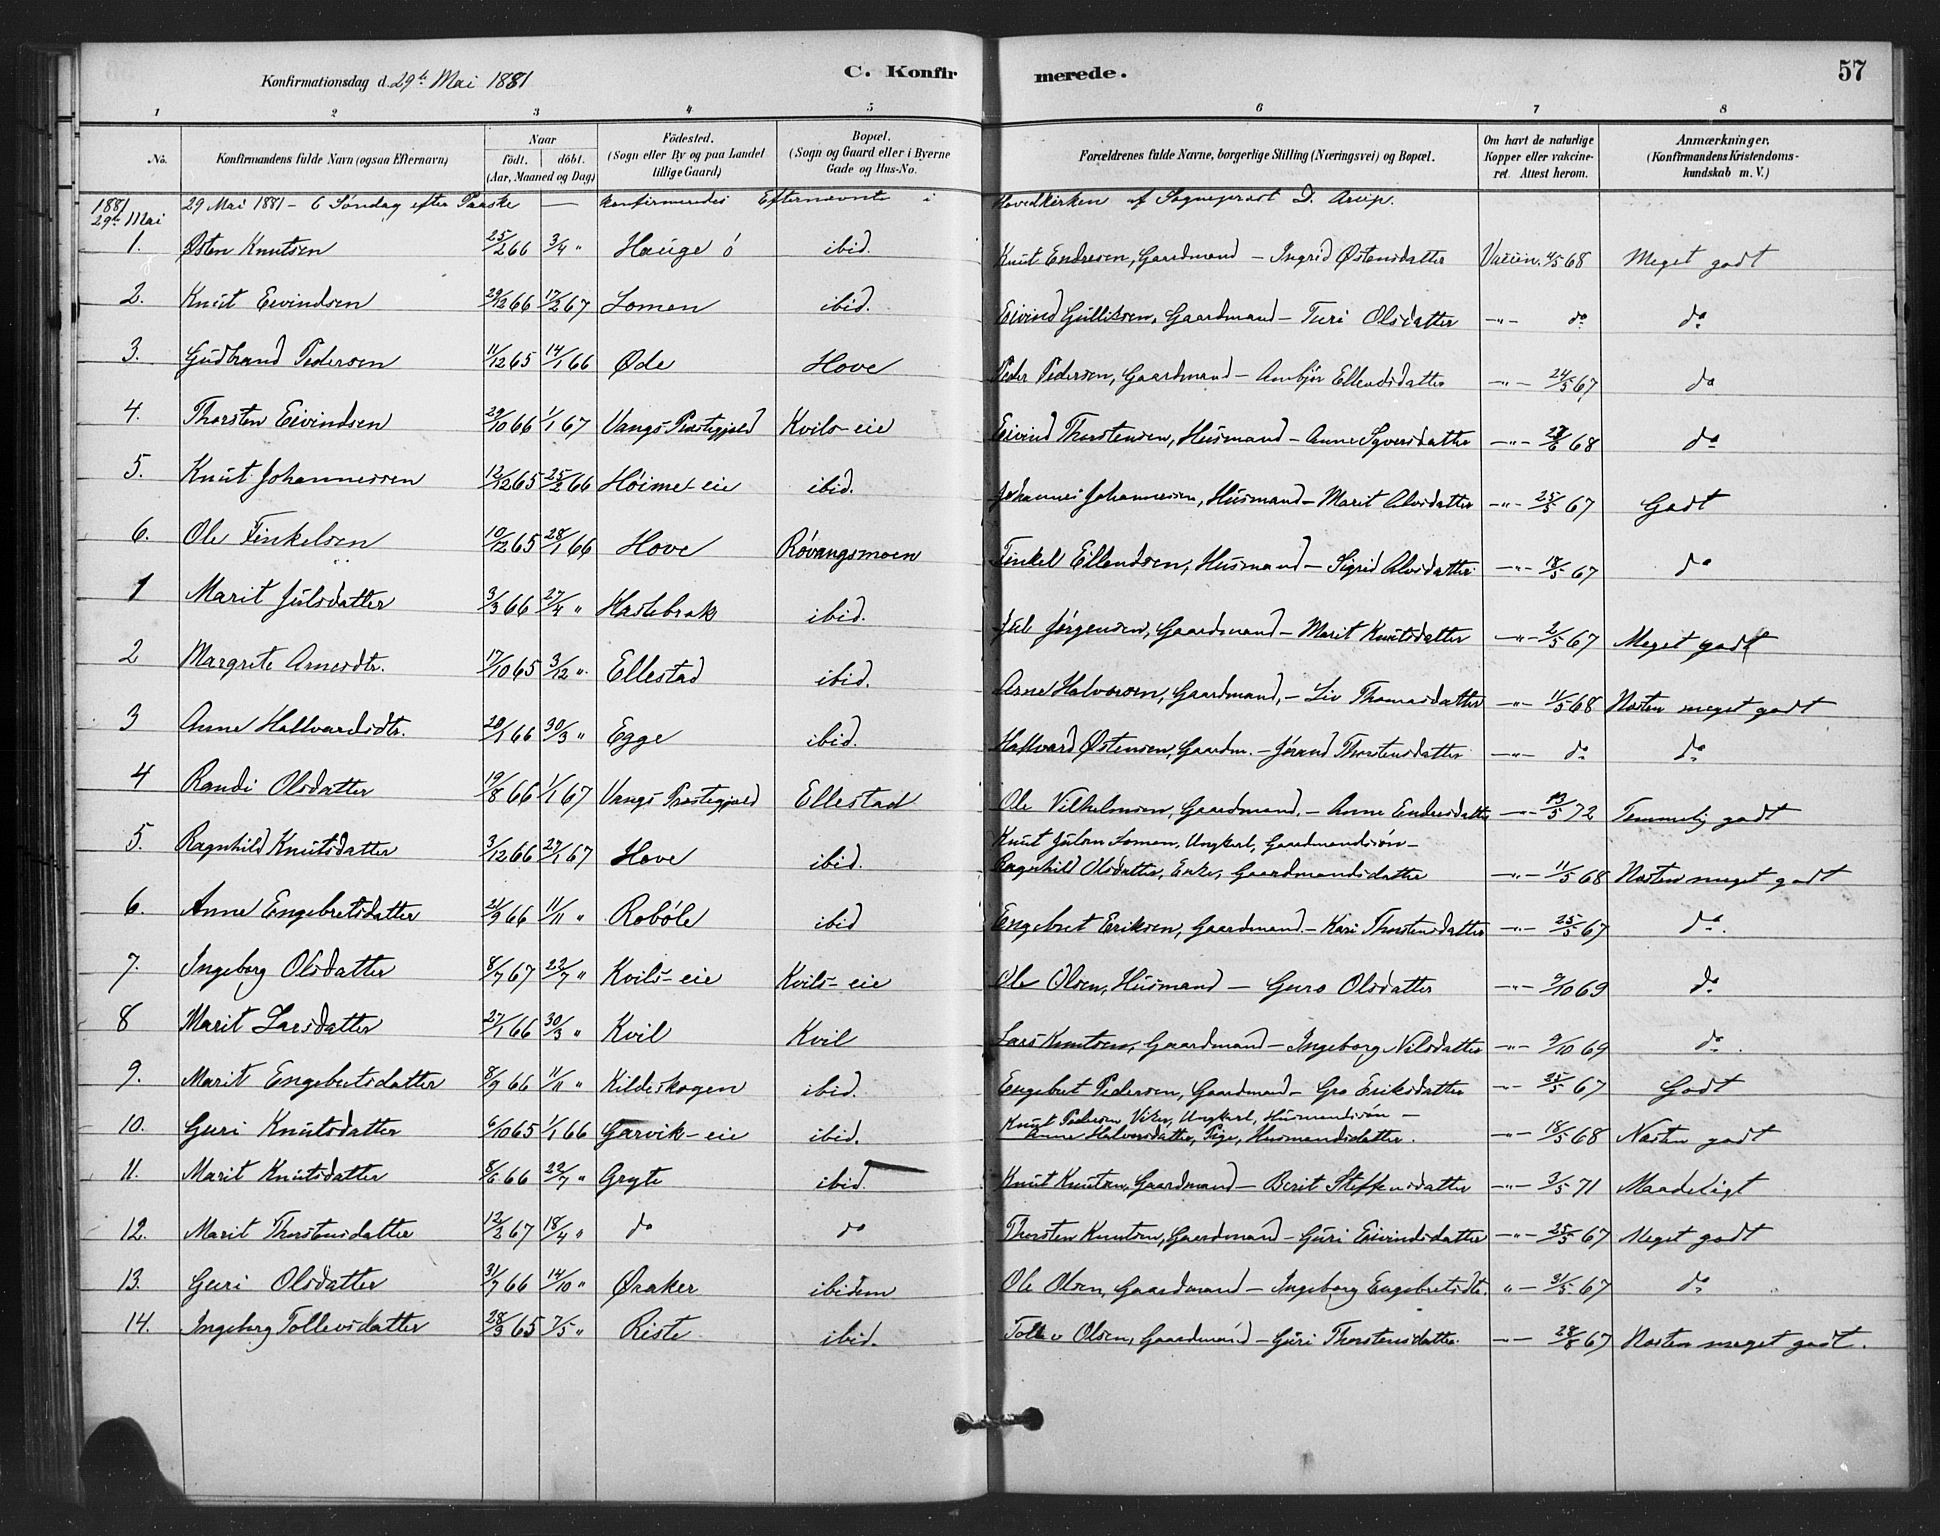 Konfirmationsdag d. 29de Mai 1881 C. Konfirmerede. 57
1 2 3 4 5 6 7 8
No. Konfirmandens fulde Navn (ogsaa Efternavn) Naar födt. döbt. (Aar, Maaned og Dag) Födested. (Sogn eller By og paa Landet tillige Gaard) Bopæl. (Sogn og Gaard eller i Byerne Gade og Hus-No. Forældrenes fulde Navne, borgerlige Stilling (Næringsvei) og Bopæl. Om havt de naturlige Kopper eller vakcineret. Attest herom. Anmærkninger, (Konfirmandens Kristendomskundskab m. V.)
1881 29de Mai 29 Mai 1881 - 6 Söndag efter Paaske — konfirmeredes Efternævnte i Hovedkirken af Sogneprest D.
1. Østen Knutsen 25/2 66 3/4 " Hauge ö ibid. Knut Endresen, Gaardmand - Ingrid Østensdatter Vaccin. 4/5 68 Meget godt
2. Knut Eivindsen 29/12 66 17/2 67 Lomen ibid. Eivind Gulliksen, Gaardmand - Turi Olsdatter -"- do do
3. Gudbrand Pedersen 11/12 65 14/1 66 Øde Hove Peder Pedersen, Gaardmand - Ambjör Ellendsdatter -"- 24/5 67 do
4. Thorsten Eivindsen 29/10 66 1/1 67 Vangs Præstegjeld Kvils-eie Eivind Thorstensen, Husmand - Anne Syversdatter -"- 68 do
5. Knut Johannessen 12/12 65 25/2 66 Höime-eie ibid. Johannes Johannessen, Husmand - Marit Alvsdatter -"- 25/5 67 Godt
6. Ole Finkelsen 10/12 65 28/1 66 Hove Rövangsmoen Finkel Ellendsen, Husmand - Sigrid Alvsdatter -"- 18/5 67 do
1 Marit Julsdatter 3/3 66 27/4 " Hastebrak ibid. Jul Jörgensen, Gaardmand - Marit Knutsdatter -"- 2/5 67 Meget godt
2 Margrete Arnesdtr. 17/10 65 3/12 " Ellestad ibid. Arne Halvorsen, Gaardmand, - Liv Thomasdatter -"- 11/5 68 Næsten meget godt
3 Anne Hallvardsdtr. 20/1 66 30/3 " Egge ibid. Hallvard Østensen, Gaardm. - Jörand Thorstensdatter -"- do do
4 Randi Olsdatter 19/8 66 1/1 67 Vangs Præstegjeld Ellestad Ole Vilhelmsen, Gaardmand. - Anne Endresdatter -"- 13/5 72 Temmelig godt
5. Ragnhild Knutsdatter 3/12 66 27/1 67 Hove ibid. Knut Julsen Lomen, Ungkarl, Gaardmandssön -
Ragnhild Olsdatter, Enke, Gaardmandsdatter -"- 11/5 68 Næsten meget godt
6. Anne Engebretsdatter 21/9 66 11/11 " Roböle ibid Engebret Eriksen, Gaardmand. - Kari Thorstensdatter -"- 25/5 67 do.
7. Ingeborg Olsdatter 8/7 67 22/7 " Kvils-eie Kvils-eie Ole Olsen, Husmand - Guro Olsdatter -"- 9/10 69 do
8 Marit Larsdatter 27/1 66 30/3 " Kvil Kvil Lars Knutsen, Gaardmand - Ingeborg Nilsdatter -"- 9/10 69 do.
9. Marit Engebretsdatter 8/9 66 11/11 " Kildeskogen ibid. Engebret Pedersen, Gaardmand - Gro Eriksdatter -"- 25/5 67 Godt
10. Guri Knutsdatter 6/10 65 1/1 66 Garvik-eie ibid. Knut Pedersen Viken, Ungkarl, Husmandssön -
Anne Halvorsdatter, Pige, Husmandsdatter. -"- 18/5 68 Næsten godt
11. Marit Knutsdatter 8/6 66 22/7 " Gryte ibid. Knut Knutsen, Gaardmand - Berit Steffensdatter -"- 3/5 71 Maadeligt
12. Marit Thorstensdatter 12/2 67 18/4 " do do Thorsten Knutsen, Gaardmand - Guri Eivindsdatter -"- 25/5 67 Meget godt
13. Guri Olsdatter 31/7 66 14/10 " Øraker ibidem Ole Olsen, Gaardmand - Ingeborg Engebretsdtr. " - 31/5 67 do
14. Ingeborg Tollevsdatter 28/3 65 7/5 " Riste ibid. Tollev Olsen, Gaardmand - Guri Thorstensdatter. -"- 28/8 67 Næsten meget godt.